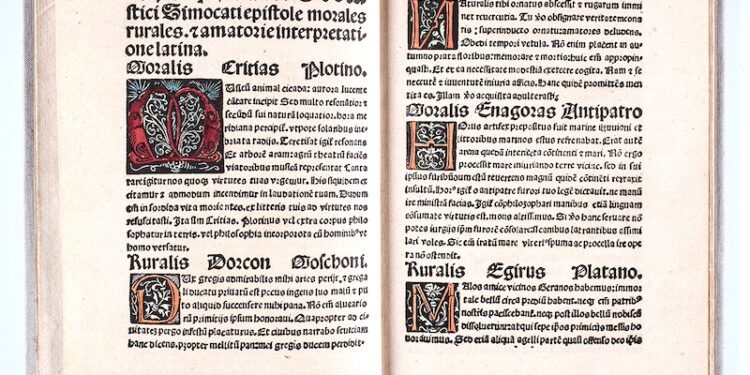 stici Simocati epistole morales
rurales. & amatorie interpretati-
one latina.
Moralis Critias Plotino.
Usicū animal cicada: aurora lucente
cātare incipit Sed multo resonātior &
secūdū sui naturā loquatior. hora me
ridiana percipit̃. vtpote solaribus ine
briata radijs. Teretisat igit̃ resonans
Et arborē aram: agrū theatrū faciēs
viatoribus musicā representat Canta
rare igitur nos quoqꝫ virtutes tuas vrgemur. His siquidem ex
citamur & admodum incendimur in laudationē tuam. Dudum
em̃ in sordida vita morientes. ex litteris tuis ad virtutes nos
resuscitasti. Ita sim Critias. Plotinus vel extra corpus philo
sophatur in terris. vel philosophia incorporata cū hominibꝰ vt
homo versatur.
Ruralis Dorcon Moschoni.
Dux gregis admirabilis mihi aries perijt. & grega
li ducatu priuatū est pecus ingens luo malū & pu
to aliquid succensere mihi pana. Nō em̃ alueario
rū primitijs ipsum honoraui. Quapropter ad ci
uitatez pergo infestū placaturus. Et ciuibus narrabo seuiciam
hanc dicens. propter mellitū pan: mei gregis ducem perdidit
Naturalis tibi ornatus obscessit & rugarum immi
net reuerentia. Tu v̊o obsigrare veritatē mona
tis: superinducto ornatu: amatores deludens,
Obedi tempori vetula. Nō enim placent in au
tumno prata floribus: memorare & mortiū em̃ appropin-
quasti. Et ex ea necessitate modestiā exercere cogita. Nam & se
nectutē & iuuentutē iniuria afficis. Hanc quidē promittēs men
tita es. Illam v̊o acquisita adulterasti;
Moralis Enagoras Antipatro
Horius artifex prepositus fuit marine illuuioni et
littoribus marinos estus refrenabat. Erat autē
arena quedā interiecta cōtinenti & mari. Nō ergo
processit mare iniuriando terre vicine. sed in se
ipsius furibūdum estū reuerens magnū quidē cōtineri retraxit
insultū. Hoc igit̃ o antipater furori tuo legē dictauit. ne manū
ire ministrā facias. Igit̃ cōphilozophari manibus etiā linguam
cōsumare virtutis est. nō nō altissimi. Si v̊o hanc seruare nō
potes iurgijs ipm̃ furorē cōsolare: sicut canibus latrantibus assimi
lari voles. Sic em̃ iratū mare vlteri⁹ spuma ac procella ire ope
ra nō ostendit.
Ruralis Egirus Platano.
Malos amice vicinos Geranos habemus: immor
tale bellū circa prediū habent. neqꝫ em̃ patribꝰ
nostris pacisceban̄t. neqꝫ post illos bellū nobiscū
dissoluerunt: atqui sepe ip̃os primicijs messis ho
norauimus. Sed etiā aliquā agelli partē quasi offenso deo ip̃is